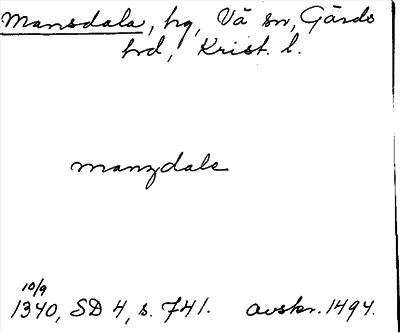 Mansdala, hg, Vä sn, Gärds
hrd, Krist. l.
manzdale
10/9
1340, SD 4, s. 741. avskr. 1494.